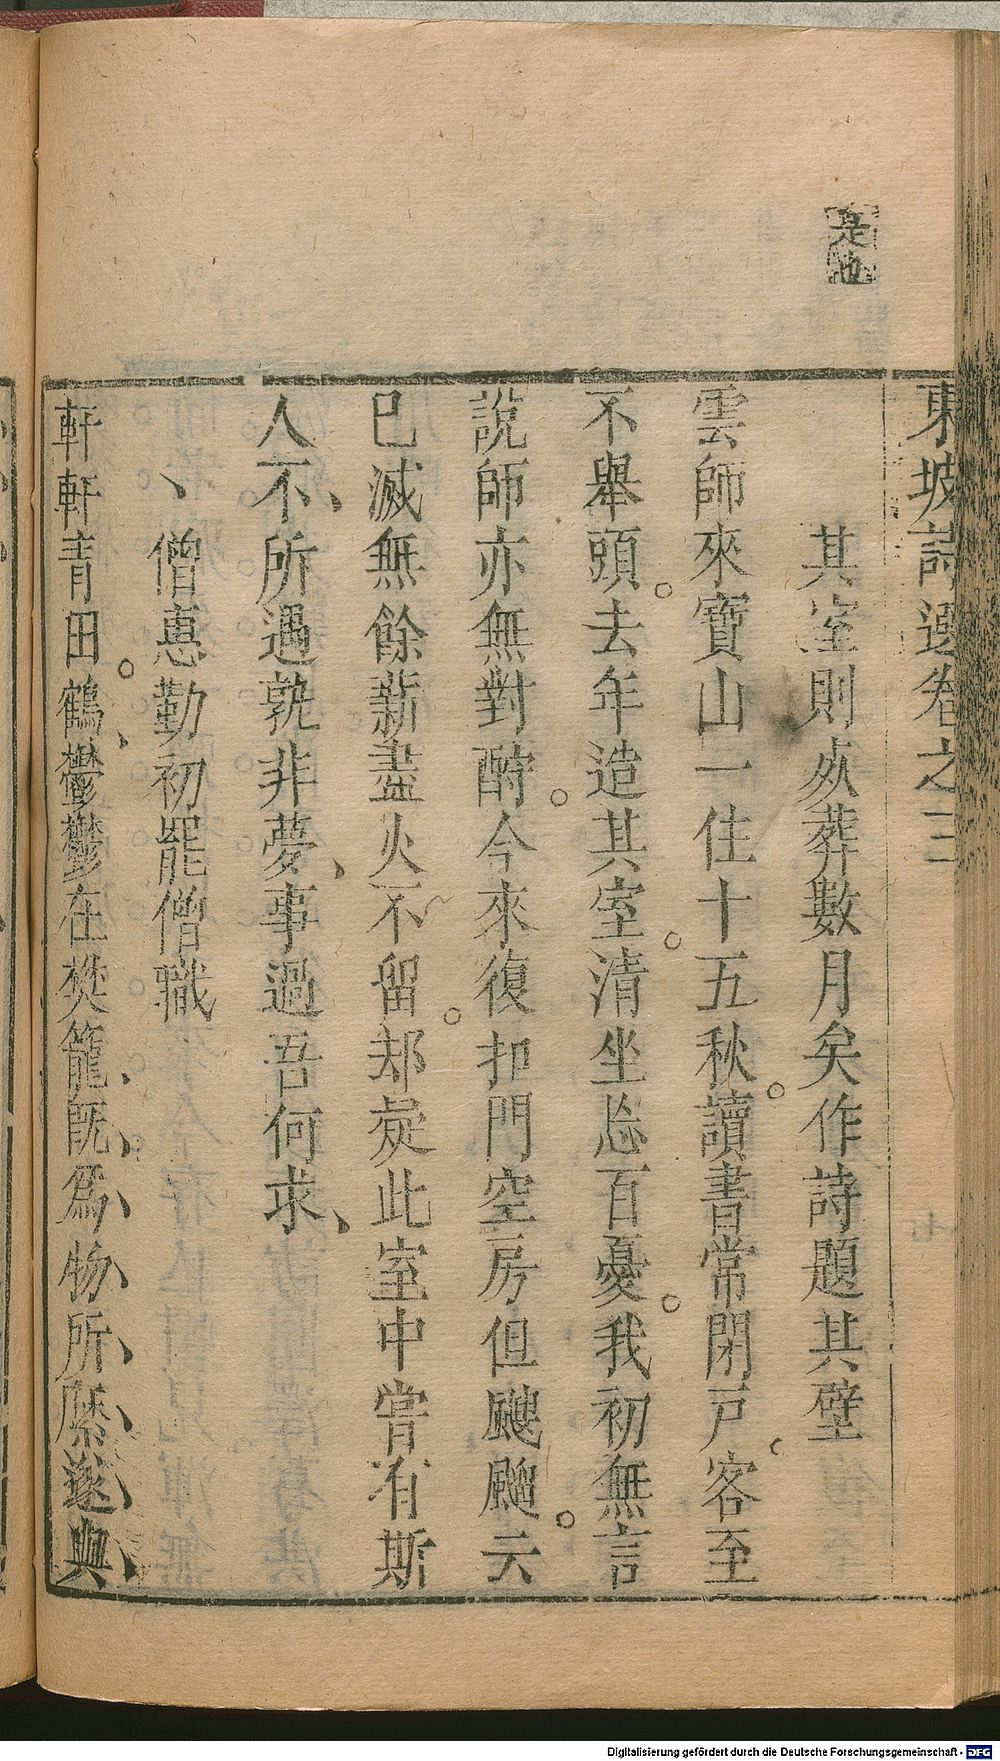 是也
東坡詩選卷之三
其室則死葬數月矣作詩題其壁
雲師來寶山一住十五秋讀書常閉戸客至
不舉頭去年造其室清坐忘百憂我初無言
說師亦無對酧今來復扣門空房但颼飀云
已滅無餘薪盡火不留却疑此室中嘗有斯
人不所遇孰非夢事過吾何求
僧惠勤初罷僧職
軒軒青田鶴鬱鬱在樊籠既爲物所縻遂與
Digitalisierung gefördert durch die Deutsche Forschungsgemeinschaft - DFG